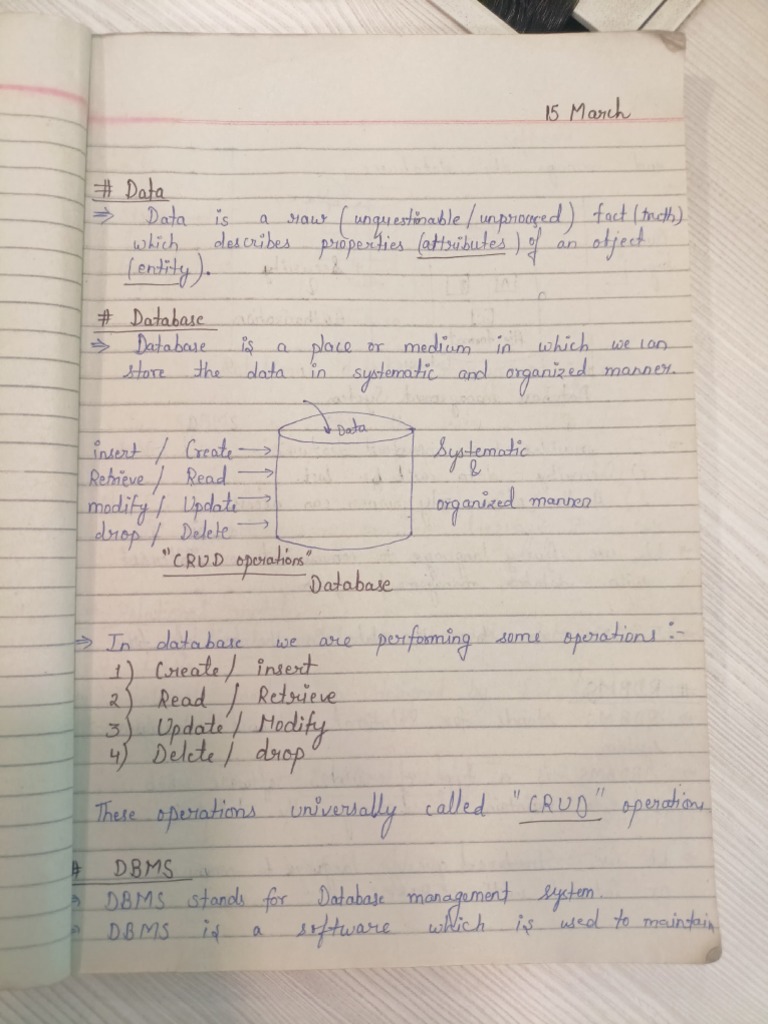 15 March
# Data
⇒ Data is a raw (unquestinable/unprouced) fact (truth)
which describes properties (attributes) of an object
(entity).
# Database
⇒ Database is a place or medium in which we can
store the data in systematic and organized manner.
Data
insert / Create →
Retrieve / Read →
modify / Update →
drop / Delete →
Systematic
&
organized manner
"CRUD operations"
Database
⇒ In database we are performing some operations :-
1) Create / insert
2) Read / Retrieve
3) Update / Modify
4) Delete / drop
These operations universally called "CRUD" operation
# DBMS
⇒ DBMS stands for Database management system.
⇒ DBMS is a software which is used to maintain